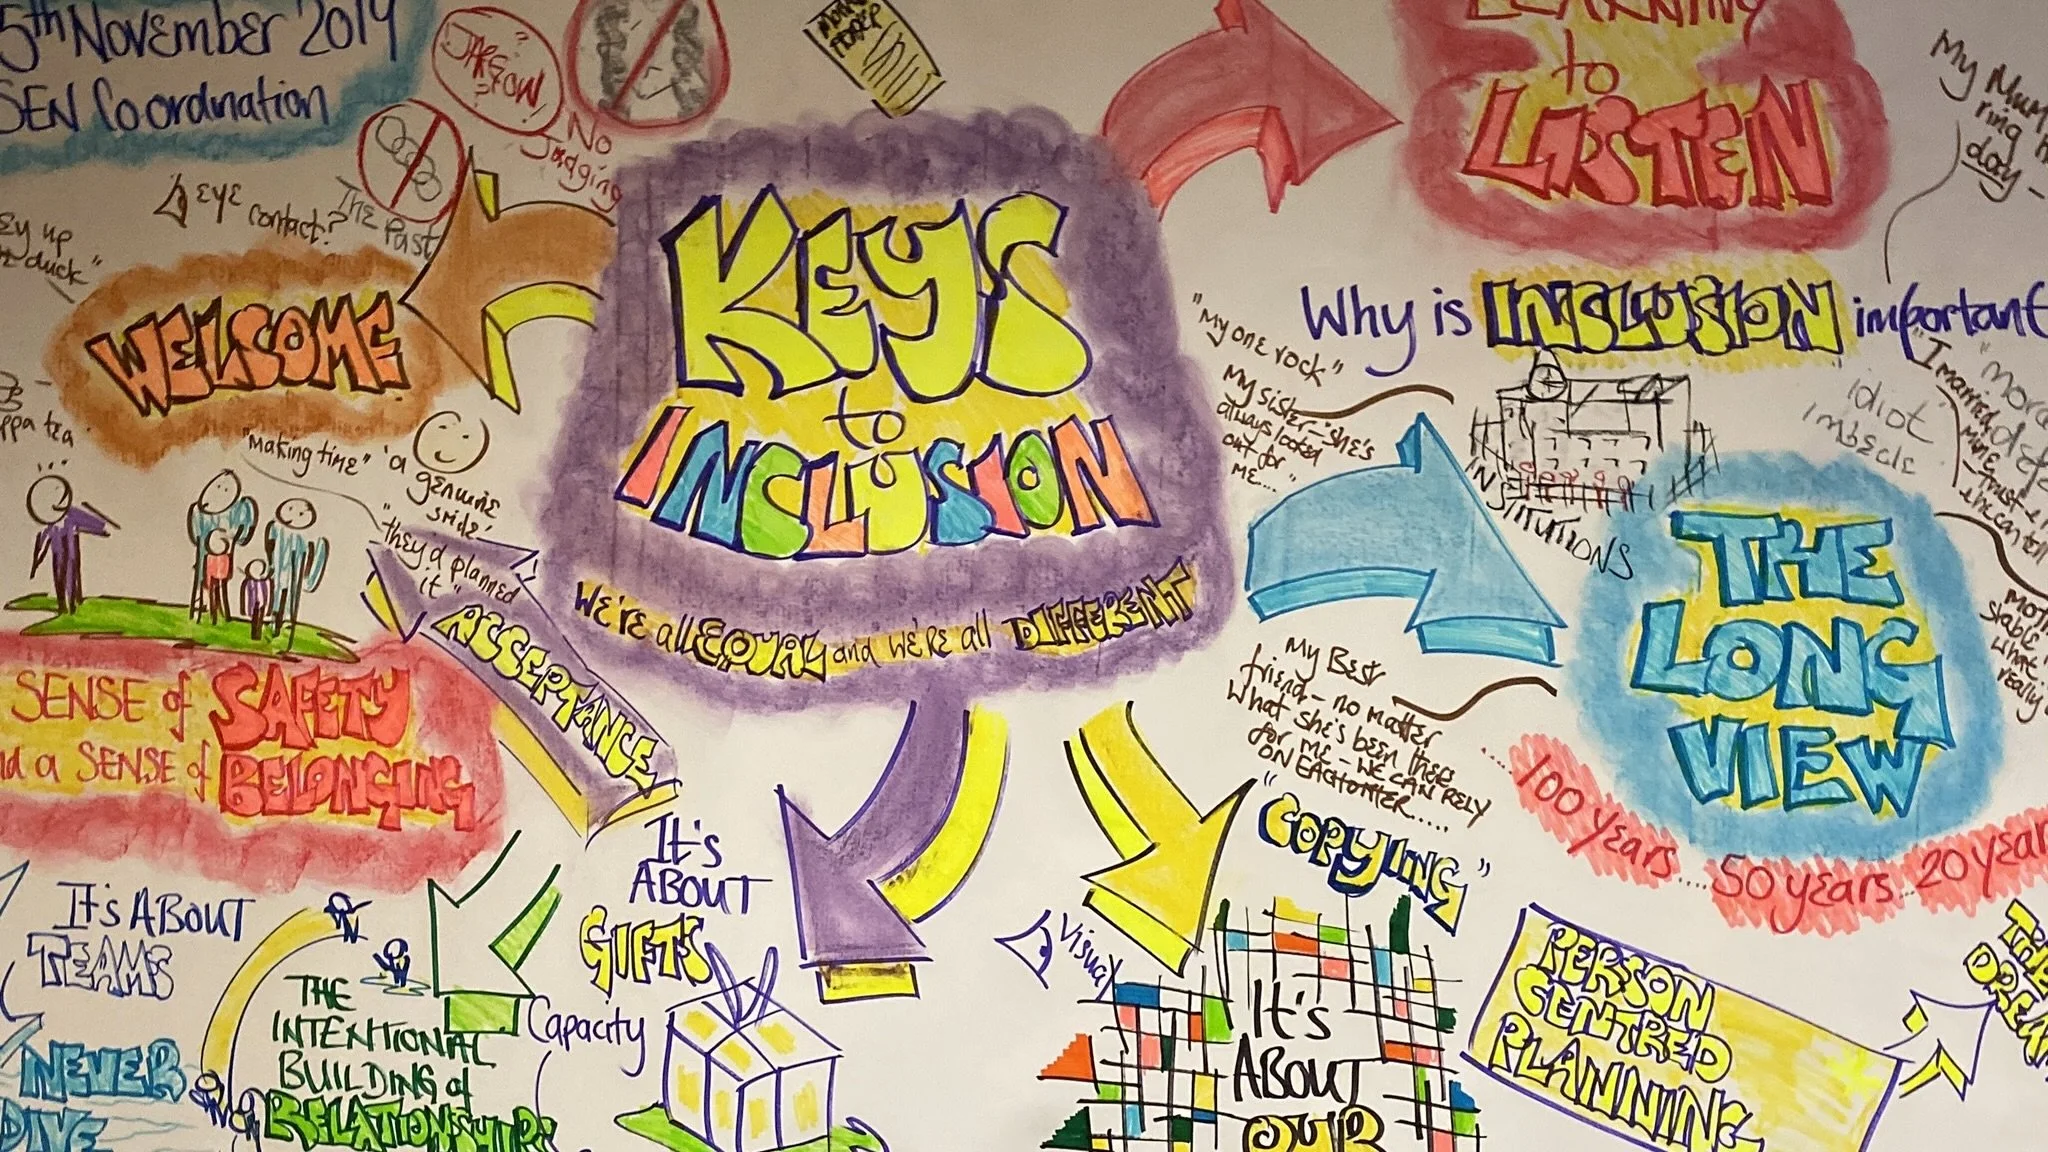 5th November 2019
SEN Coordination
JARGON!
No
Judging
THE Past
EYE contact?
ey up
duck"
WELCOME
"making time"
'a genuine smile'
"they'd planned it"
ACCEPTANCE
SENSE of SAFETY
and a SENSE of BELONGING
KEYS
to
INCLUSION
WE'RE all EQUAL and WE'RE all DIFFERENT
LEARNING
to
LISTEN
My Mum
ring
day -
Why is INCLUSION important
"My one rock"
My sister - she's
always looked
out for
me..."
INSTITUTIONS
idiot
imbecile
"I married
THE
LONG
VIEW
100 years.... 50 years... 20 year
My Best
friend - no matter
what she's been there
for me - WE CAN RELY
ON EACHOTHER....
"COPYING"
Visual
It's
ABOUT
OUR
PERSON
CENTRED
PLANNING
THE
DREAM
It's
ABOUT
GIFTS
Capacity
It's ABOUT
TEAMS
THE
INTENTIONAL
BUILDING of
RELATIONSHIPS
NEVER
DIVE